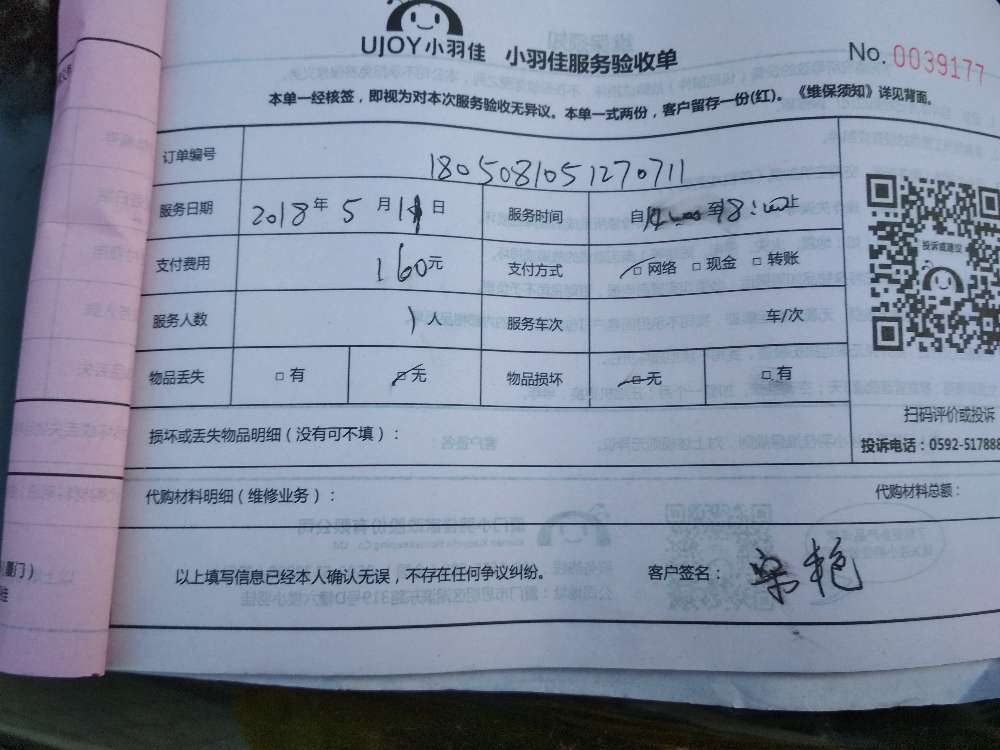 UJOY小羽佳 小羽佳服务验收单
No. 0039177
本单一经核签，即视为对本次服务验收无异议。本单一式两份，客户留存一份(红)。《维保须知》详见背面。
订单编号 1805081051270711
服务日期 2018年5月11日 服务时间 自 到18:00止
支付费用 160元 支付方式 □网络 □现金 □转账
投诉或建议
服务人数 1人 服务车次 车/次
物品丢失 □有 □无 物品损坏 □无 □有
扫码评价或投诉
损坏或丢失物品明细（没有可不填）：
投诉电话：0592-517888
代购材料明细（维修业务）： 代购材料总额：
以上填写信息已经本人确认无误，不存在任何争议纠纷。 客户签名：宋艳